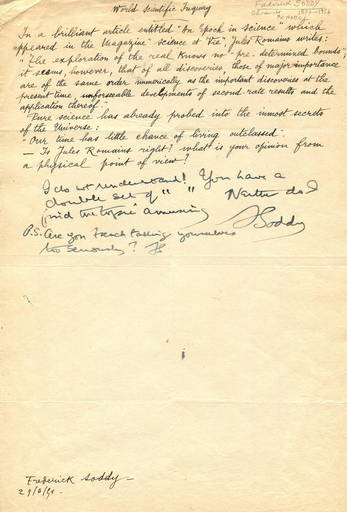 World Scientific Inquiry
Frederick SODDY
1877-1956
In a brilliant article entitled "An Epoch in science" which
appeared in the Magazine "Science et Vie", Jules Romains writes:
"The exploration of the real knows no "pre-determined bounds";
it seems, however, that of all discoveries those of major importance
are of the same order numerically as the important discoveries at the
present time, unforseeable developments of second rate results and the
application thereof."
"Pure science has already probed into the inmost secrets
of the Universe:
"Our time has little chance of living outclassed".
— Is Jules Romains right? What is your opinion from
a physical point of view?
I do not understand! You have a
double set of " " Neither do I
find the topic amusing
F Soddy
P.S. Are you French taking yourselves
too seriously? FS
Frederick Soddy —